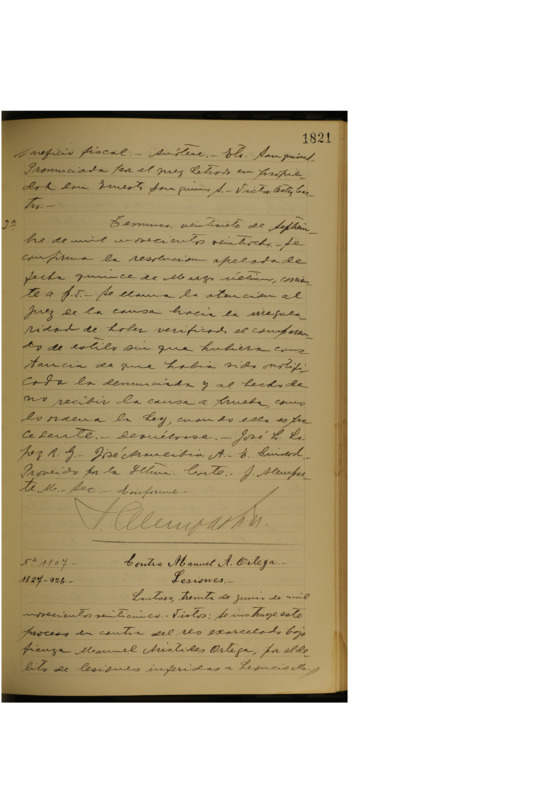 1821
neficio fiscal.- Anótese.- Eto. Sanguino.
Pronunciada por el juez letrado en propie
dad don Ernesto Sanguino S.-
tro.-
2ª Temuco, veintisiete de Septiem-
bre de mil novecientos veintiocho.- Se
confirma la resolucion apelada de
fecha quince de Marzo último, corrien-
te a f. 5.- Se llama la atencion al
juez de la causa hacia la irregula-
ridad de haber verificado el comparen-
do de estilo sin que hubiera cons-
tancia de que habia sido notifi-
cada la denunciada y al hecho de
no recibir la causa a prueba, como
lo ordena la Ley, cuando ella es pro
cedente.- Devuélvase.- José L. Ló-
pez R. G.- José Arancibia A.- E.
Proveido por la Iltma. Corte.- J. Alempar-
te M.- Sec.- Conforme.-
Nº 1107.- Contra Manuel A. Ortega.-
1827-926.- Lesiones.-
Lautaro, treinta de Junio de mil
novecientos veinticinco.- Vistos: Se instruye este
proceso en contra del reo excarcelado bajo
fianza Manuel Arístides Ortega, por el de-
lito de lesiones inferidas a